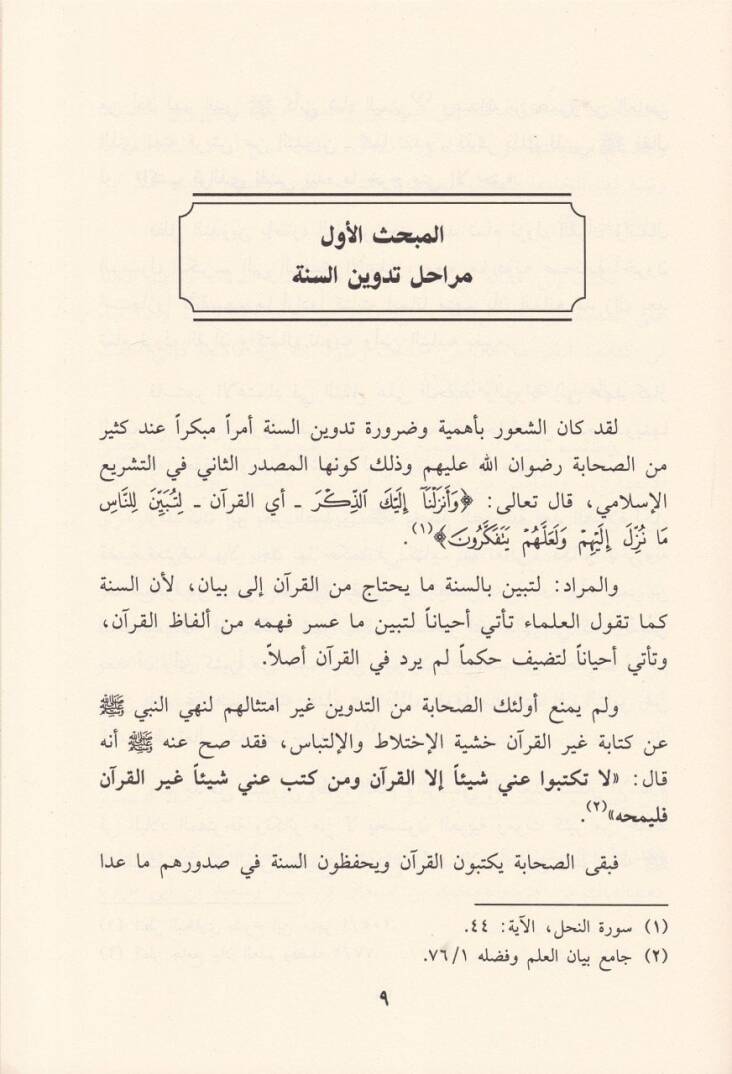 المبحث الأول
مراحل تدوين السنة
لقد كان الشعور بأهمية وضرورة تدوين السنة أمراً مبكراً عند كثير
من الصحابة رضوان الله عليهم وذلك كونها المصدر الثاني في التشريع
الإسلامي، قال تعالى: ﴿وَأَنزَلْنَآ إِلَيْكَ ٱلذِّكْرَ ـ أي القرآن ـ لِتُبَيِّنَ لِلنَّاسِ
مَا نُزِّلَ إِلَيْهِمْ وَلَعَلَّهُمْ يَتَفَكَّرُونَ﴾(١).
والمراد: لتبين بالسنة ما يحتاج من القرآن إلى بيان، لأن السنة
كما تقول العلماء تأتي أحياناً لتبين ما عسر فهمه من ألفاظ القرآن،
وتأتي أحياناً لتضيف حكماً لم يرد في القرآن أصلاً.
ولم يمنع أولئك الصحابة من التدوين غير امتثالهم لنهي النبي ﷺ
عن كتابة غير القرآن خشية الإختلاط والإلتباس، فقد صح عنه ﷺ أنه
قال: «لا تكتبوا عني شيئاً إلا القرآن ومن كتب عني شيئاً غير القرآن
فليمحه»(٢).
فبقى الصحابة يكتبون القرآن ويحفظون السنة في صدورهم ما عدا
(١) سورة النحل، الآية: ٤٤.
(٢) جامع بيان العلم وفضله ٧٦/١.
٩